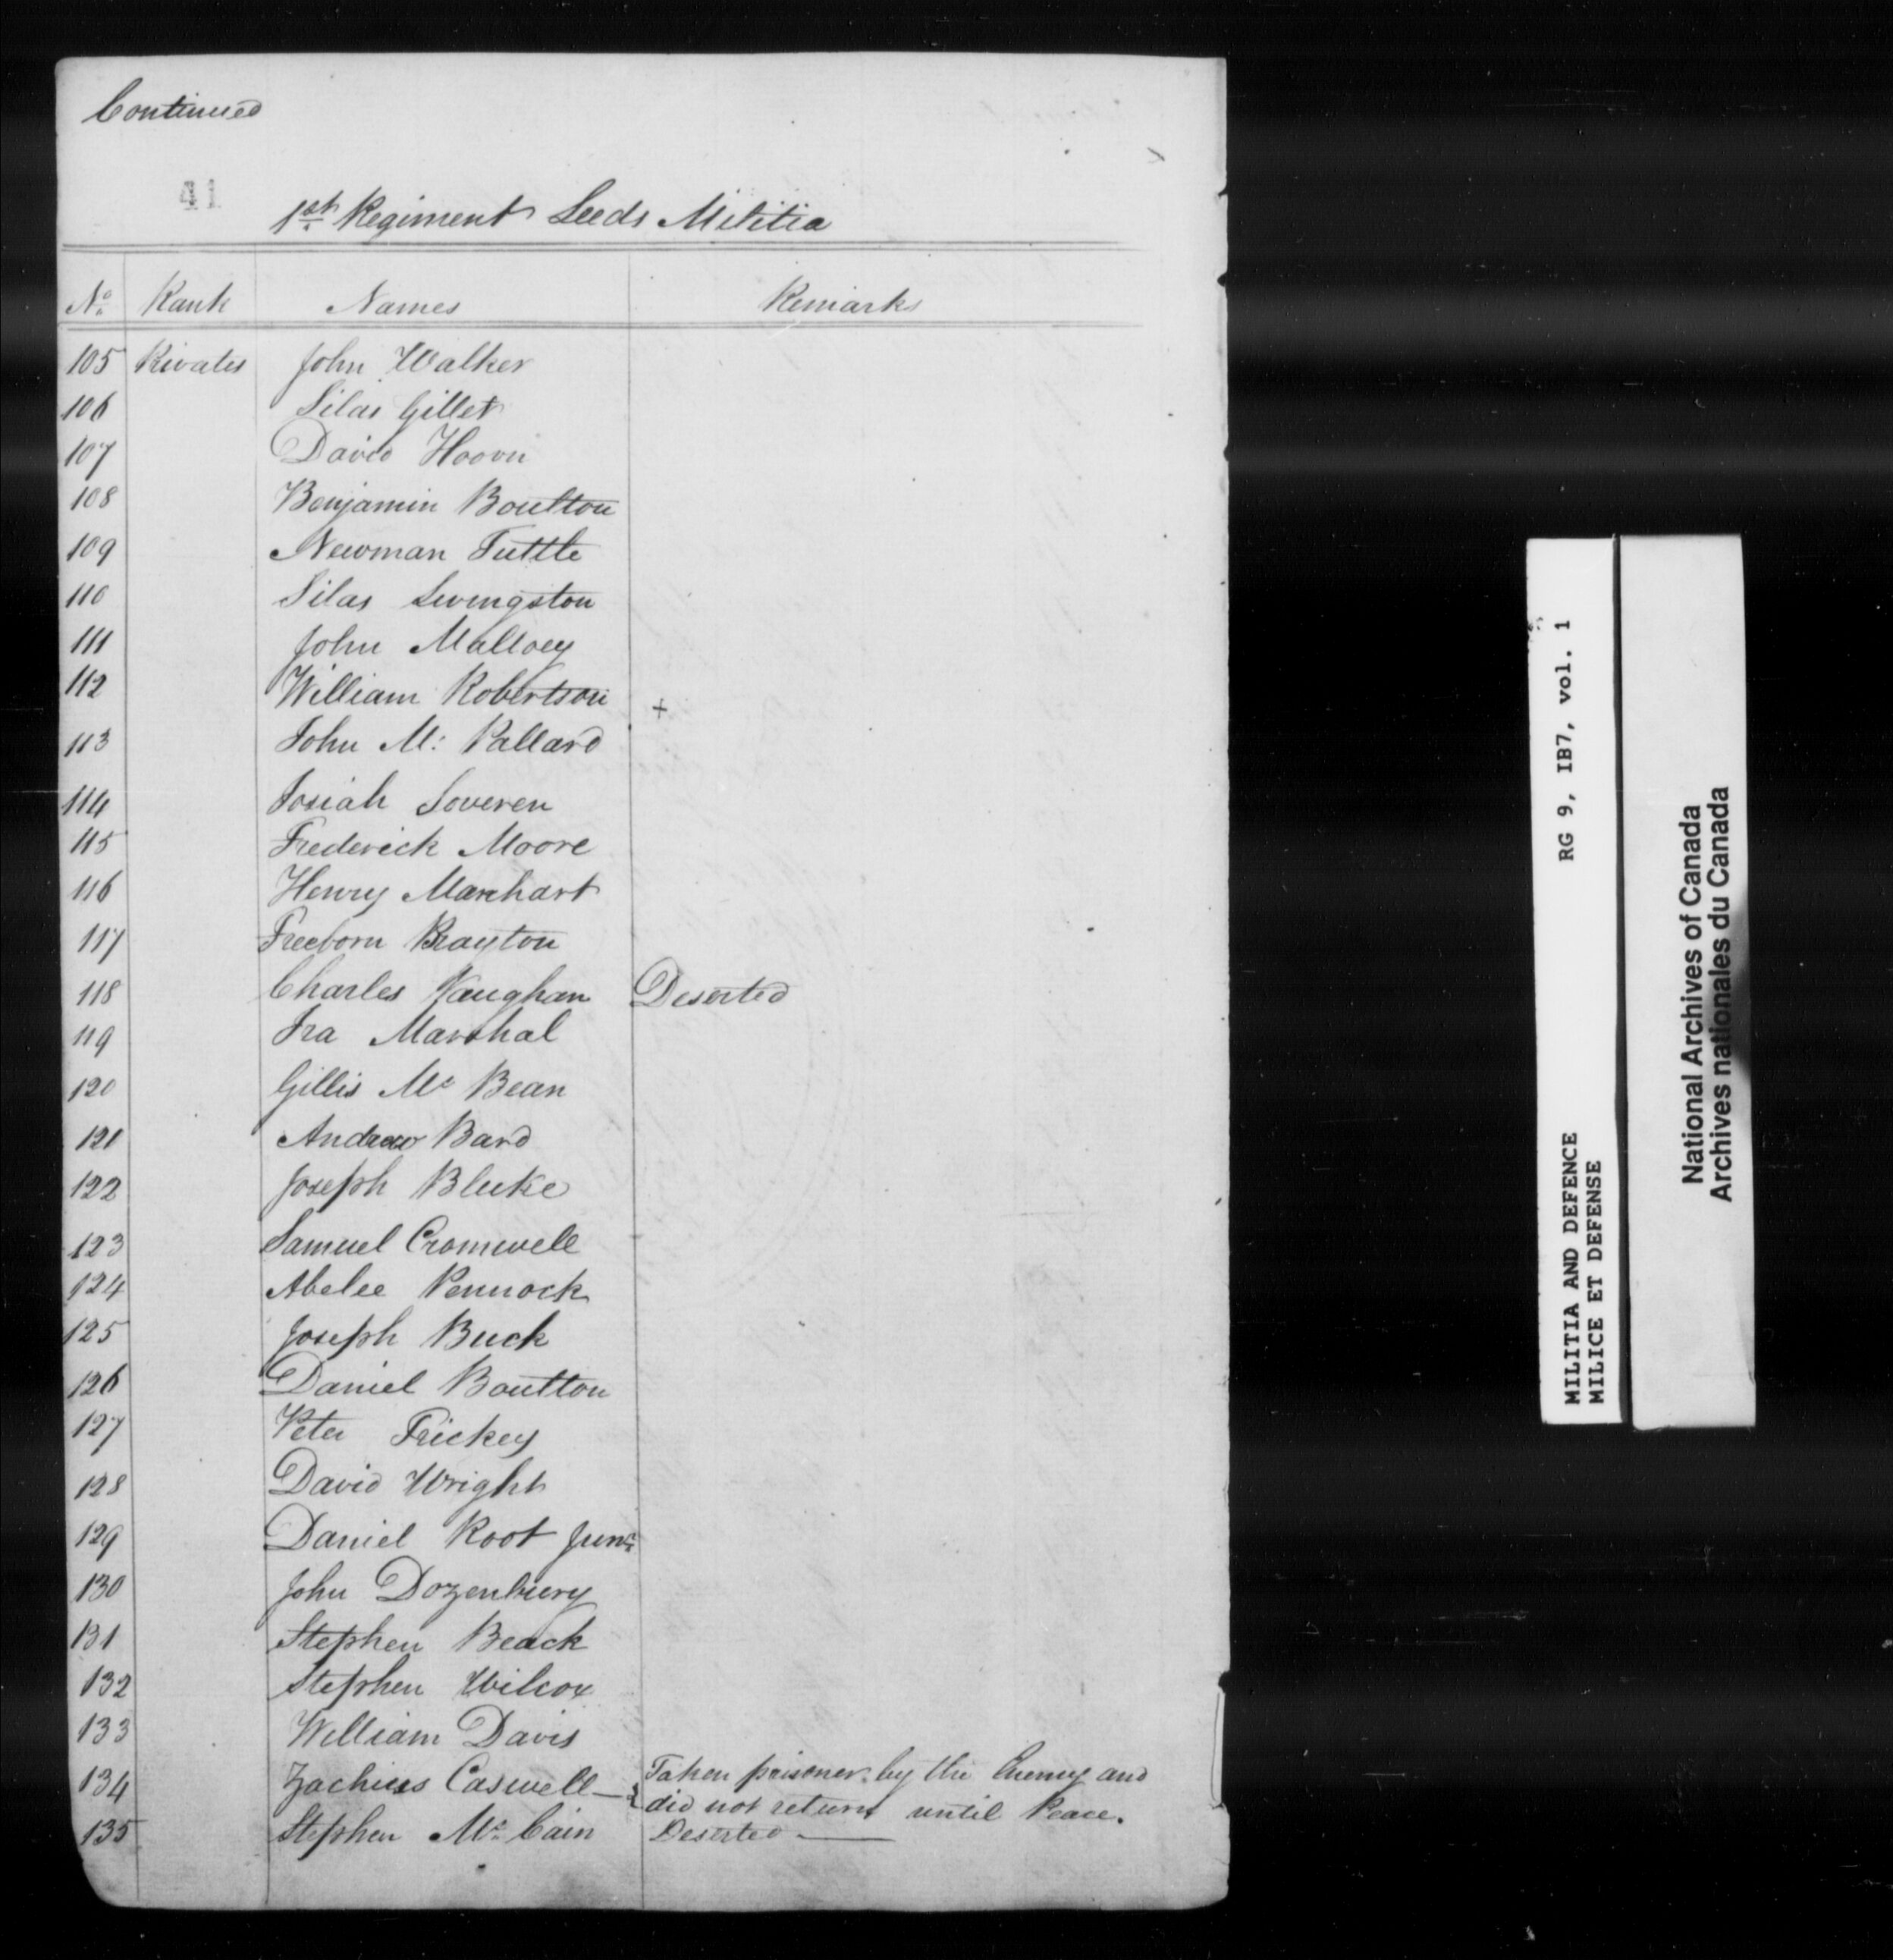 Continued
41
1st Regiment Leeds Militia
No. Rank Names Remarks
105 Privates John Walker
106 Silas Gillet
107 David Hoover
108 Benjamin Boulton
109 Newman Tuttle
110 Silas Livingston
111 John Malloey
112 William Robertson +
113 John M. Pallard
114 Josiah Soveren
115 Frederick Moore
116 Henry Marehart
117 Freeborn Brayton
118 Charles Vaughan Deserted
119 Ira Marshal
120 Gillis Mc Bean
121 Andrew Bard
122 Joseph Bluke
123 Samuel Cromwell
124 Abelee Pennock
125 Joseph Buck
126 Daniel Boutton
127 Peter Frickey
128 David Wright
129 Daniel Root Junr
130 John Dozenbury
131 Stephen Beack
132 Stephen Wilcox
133 William Davis
134 Zachius Caswell Taken prisoner by the Enemy and
did not return until Peace.
135 Stephen Mc Cain Deserted
MILITIA AND DEFENCE RG 9, IB7, vol. 1
MILICE ET DEFENSE
National Archives of Canada
Archives nationales du Canada